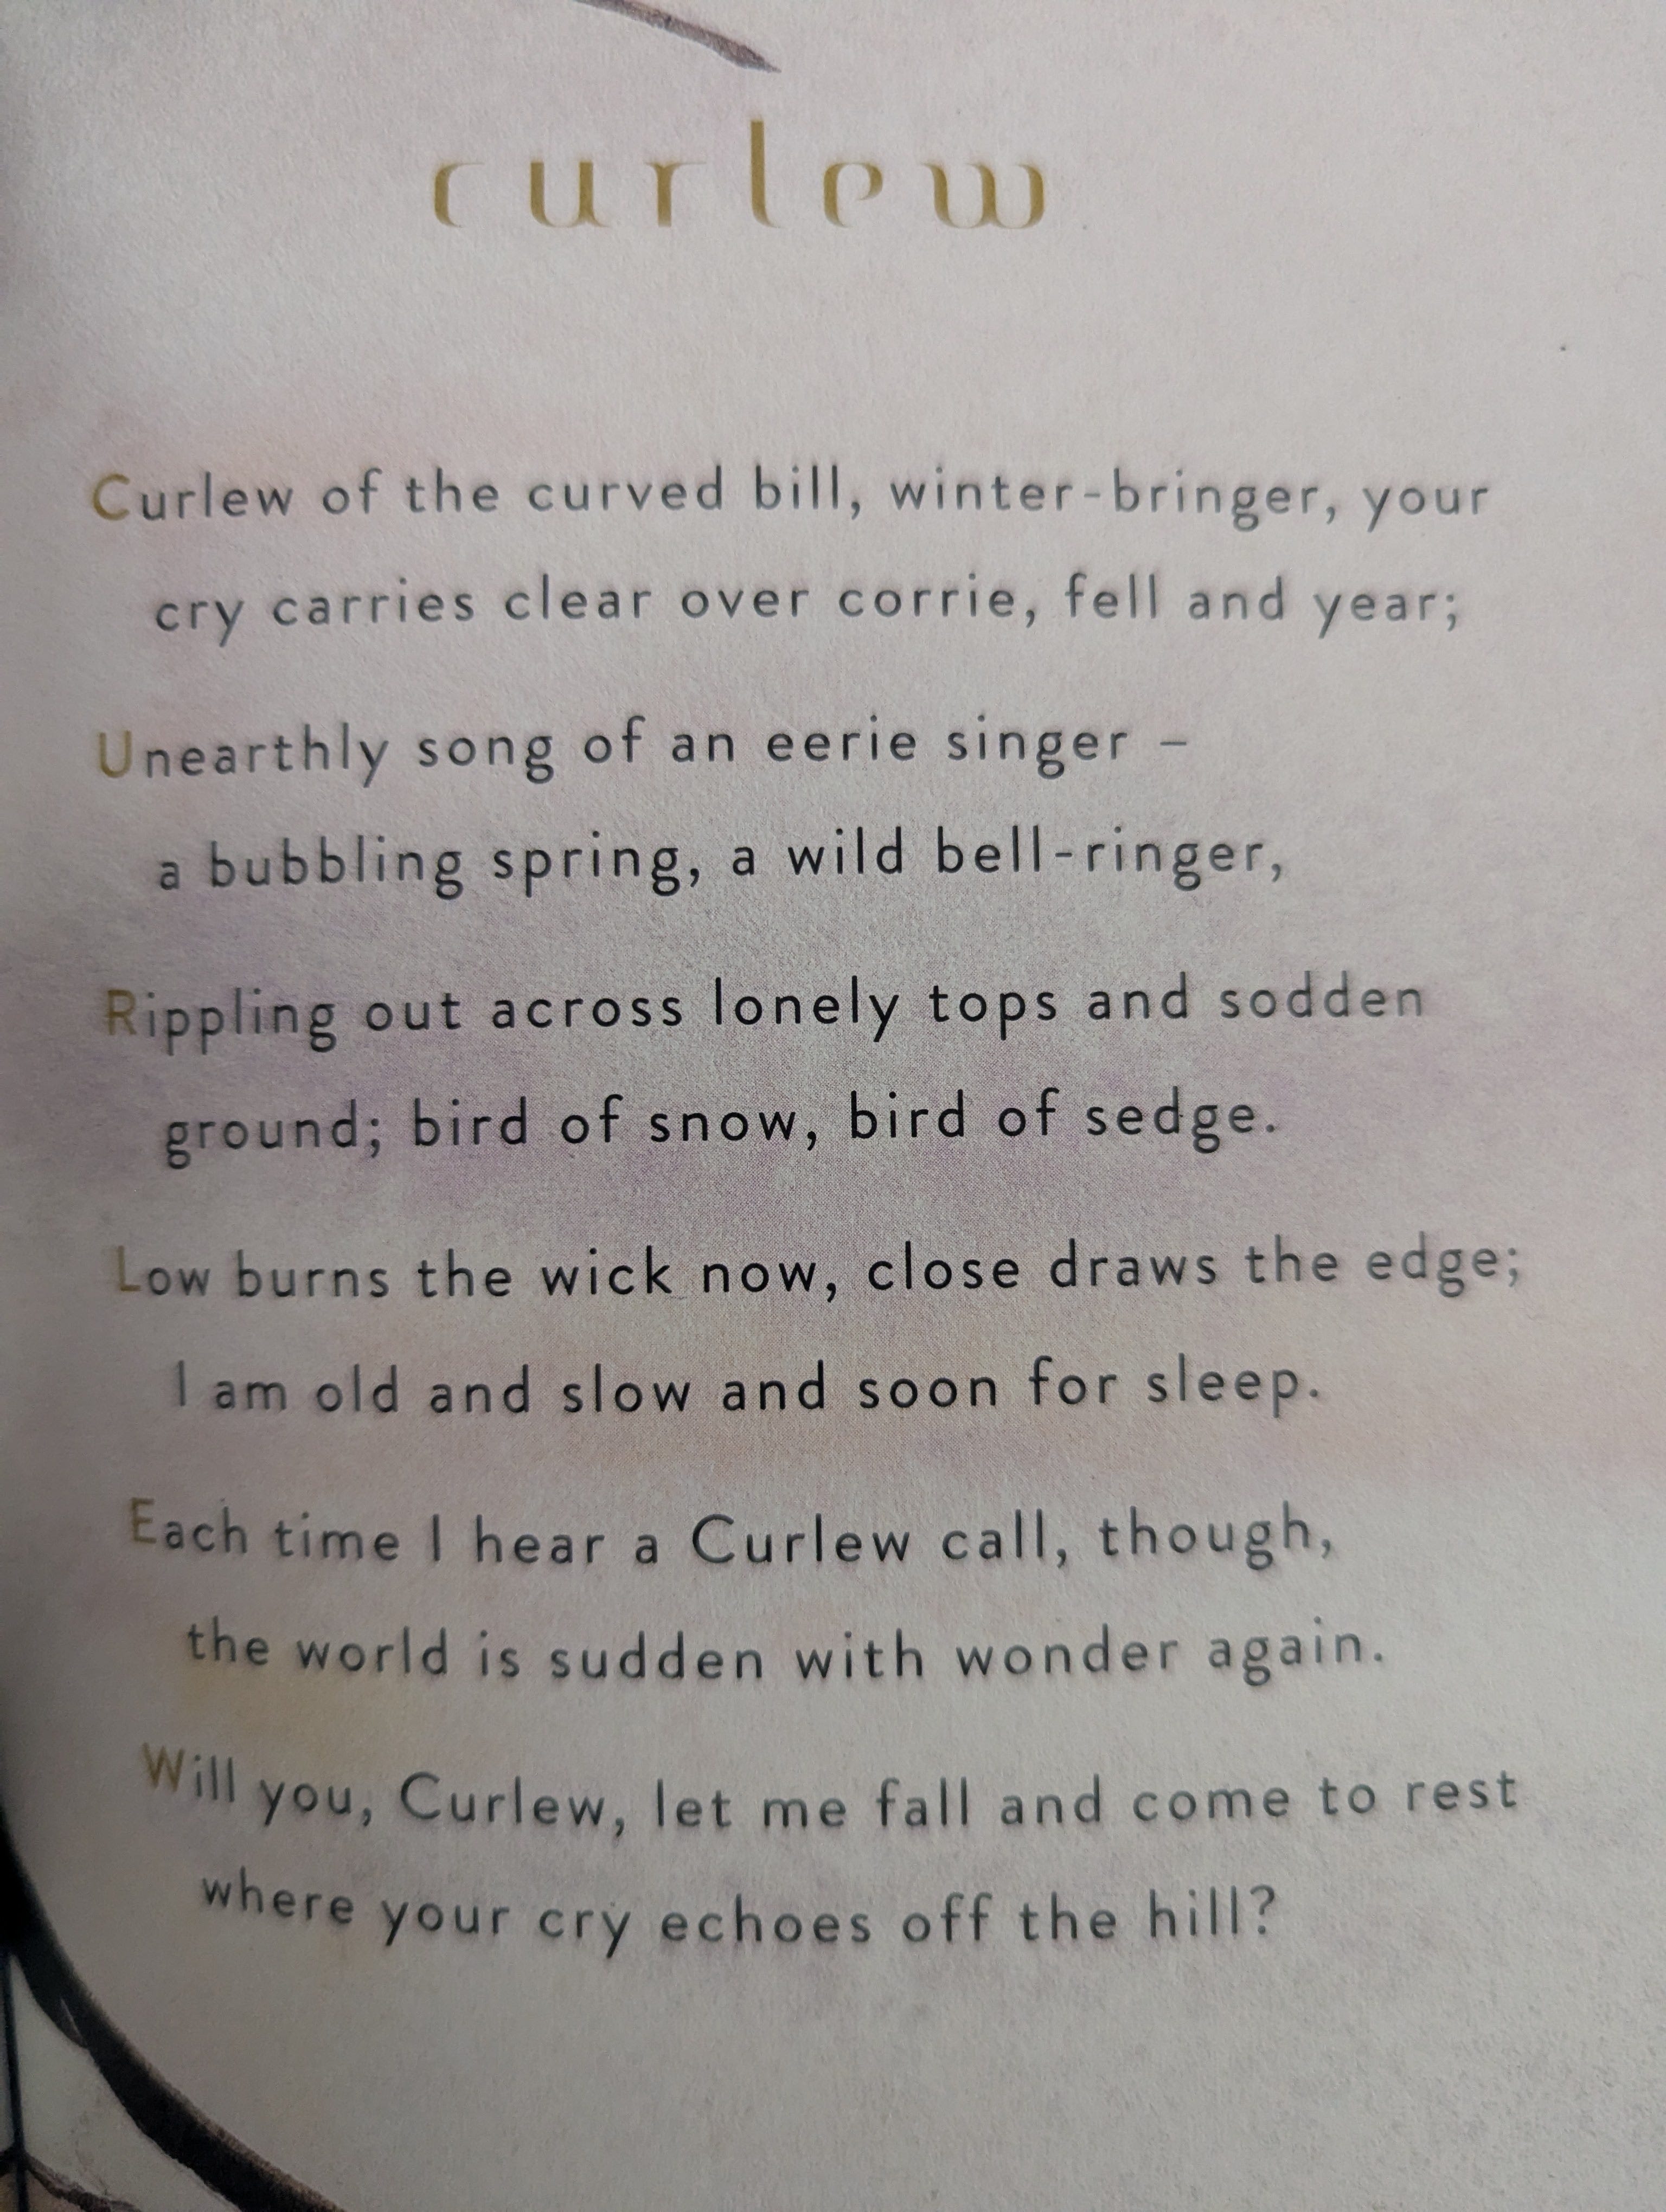 curlew
Curlew of the curved bill, winter-bringer, your
cry carries clear over corrie, fell and year;
Unearthly song of an eerie singer –
a bubbling spring, a wild bell-ringer,
Rippling out across lonely tops and sodden
ground; bird of snow, bird of sedge.
Low burns the wick now, close draws the edge;
I am old and slow and soon for sleep.
Each time I hear a Curlew call, though,
the world is sudden with wonder again.
Will you, Curlew, let me fall and come to rest
where your cry echoes off the hill?